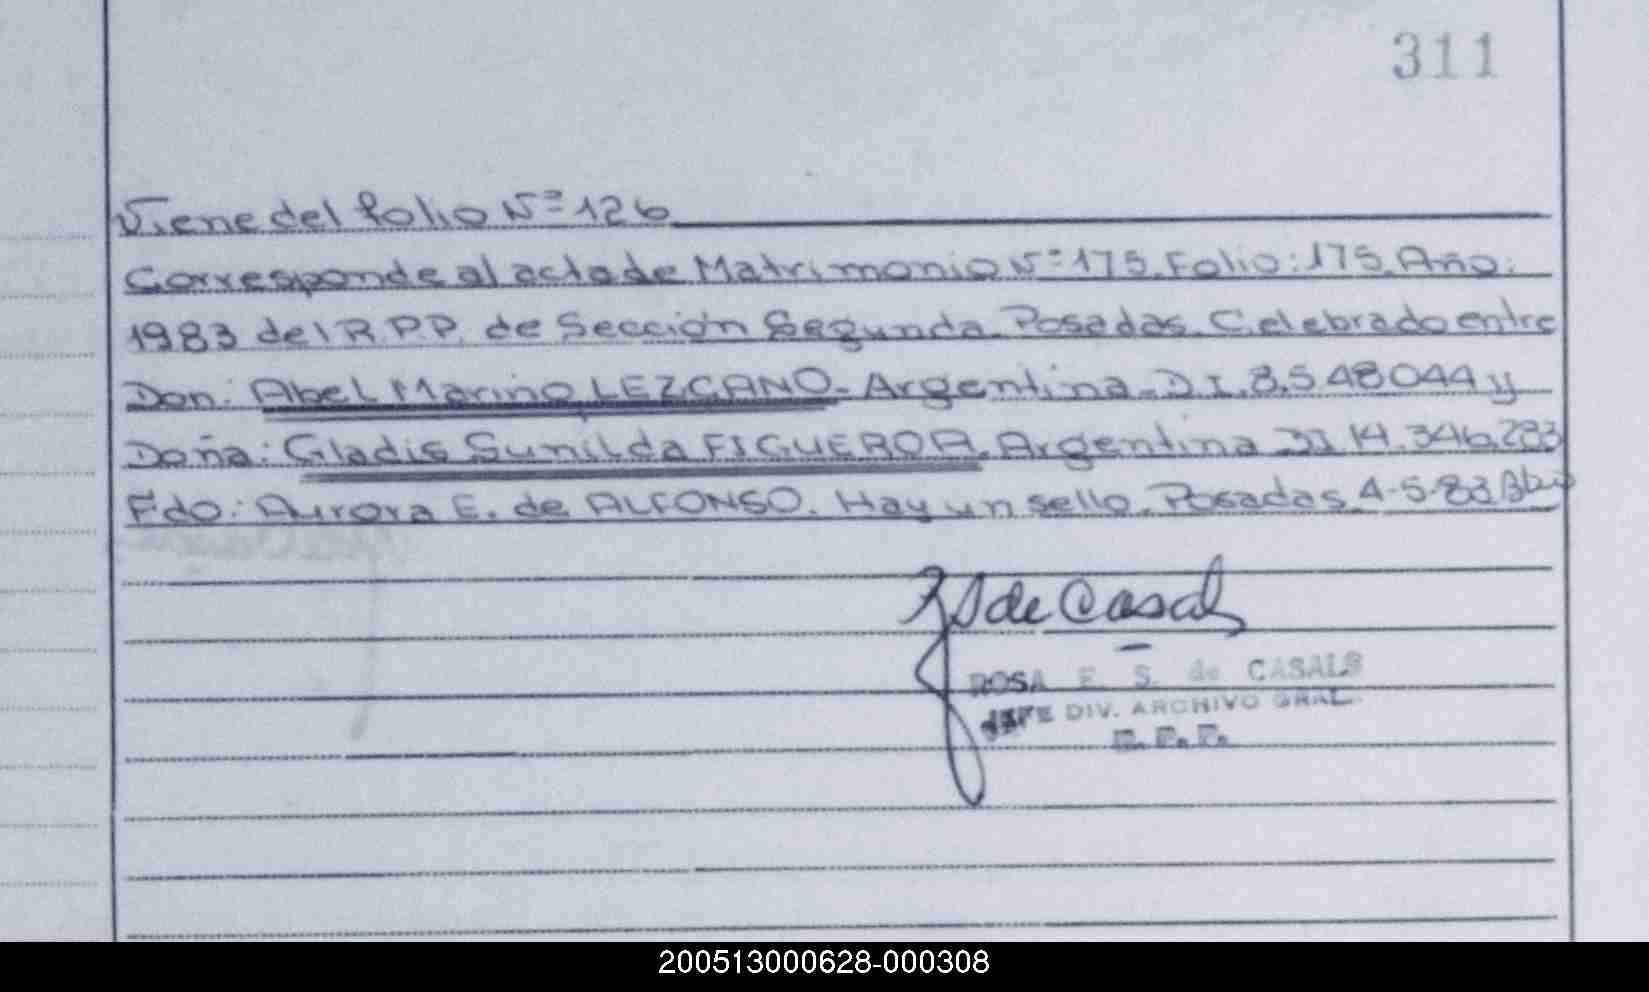 311
Viene del folio Nº 126
Corresponde al acta de Matrimonio Nº 175. Folio: 175. Año:
1983 del R.P.P. de Sección Segunda Posadas. Celebrado entre
Don: Abel Marino LEZCANO. Argentina. D.I. 8.548044 y
Doña: Gladis Sunilda FIGUEROA. Argentina DI 14.346.283
Fdo: Aurora E. de ALFONSO. Hay un sello. Posadas 4-5-83
de Casals
ROSA E. S. de CASALS
JEFE DIV. ARCHIVO GRAL.
R. P. P.
200513000628-000308